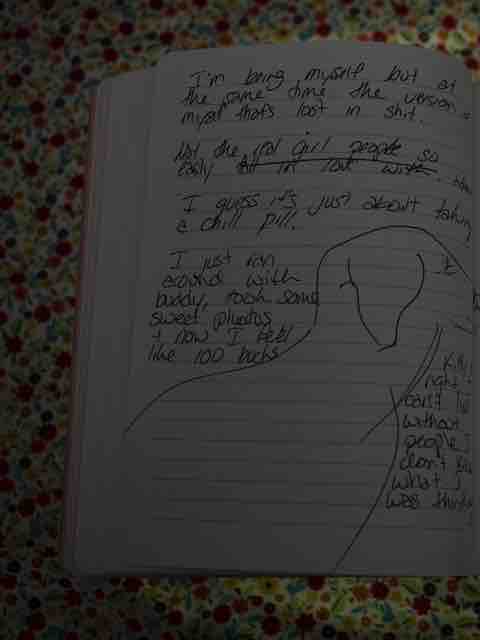 I'm being myself but at
the same time the version of
myself that's lost in shit.
Not the girl people so
easily fall in love with.
I guess it's just about taking
a chill pill.
I just ran
around with
buddy, took some
sweet photos
+ now I feel
like 100 bucks
it
Kill
right
can't
without
people I
don't
what I
was think